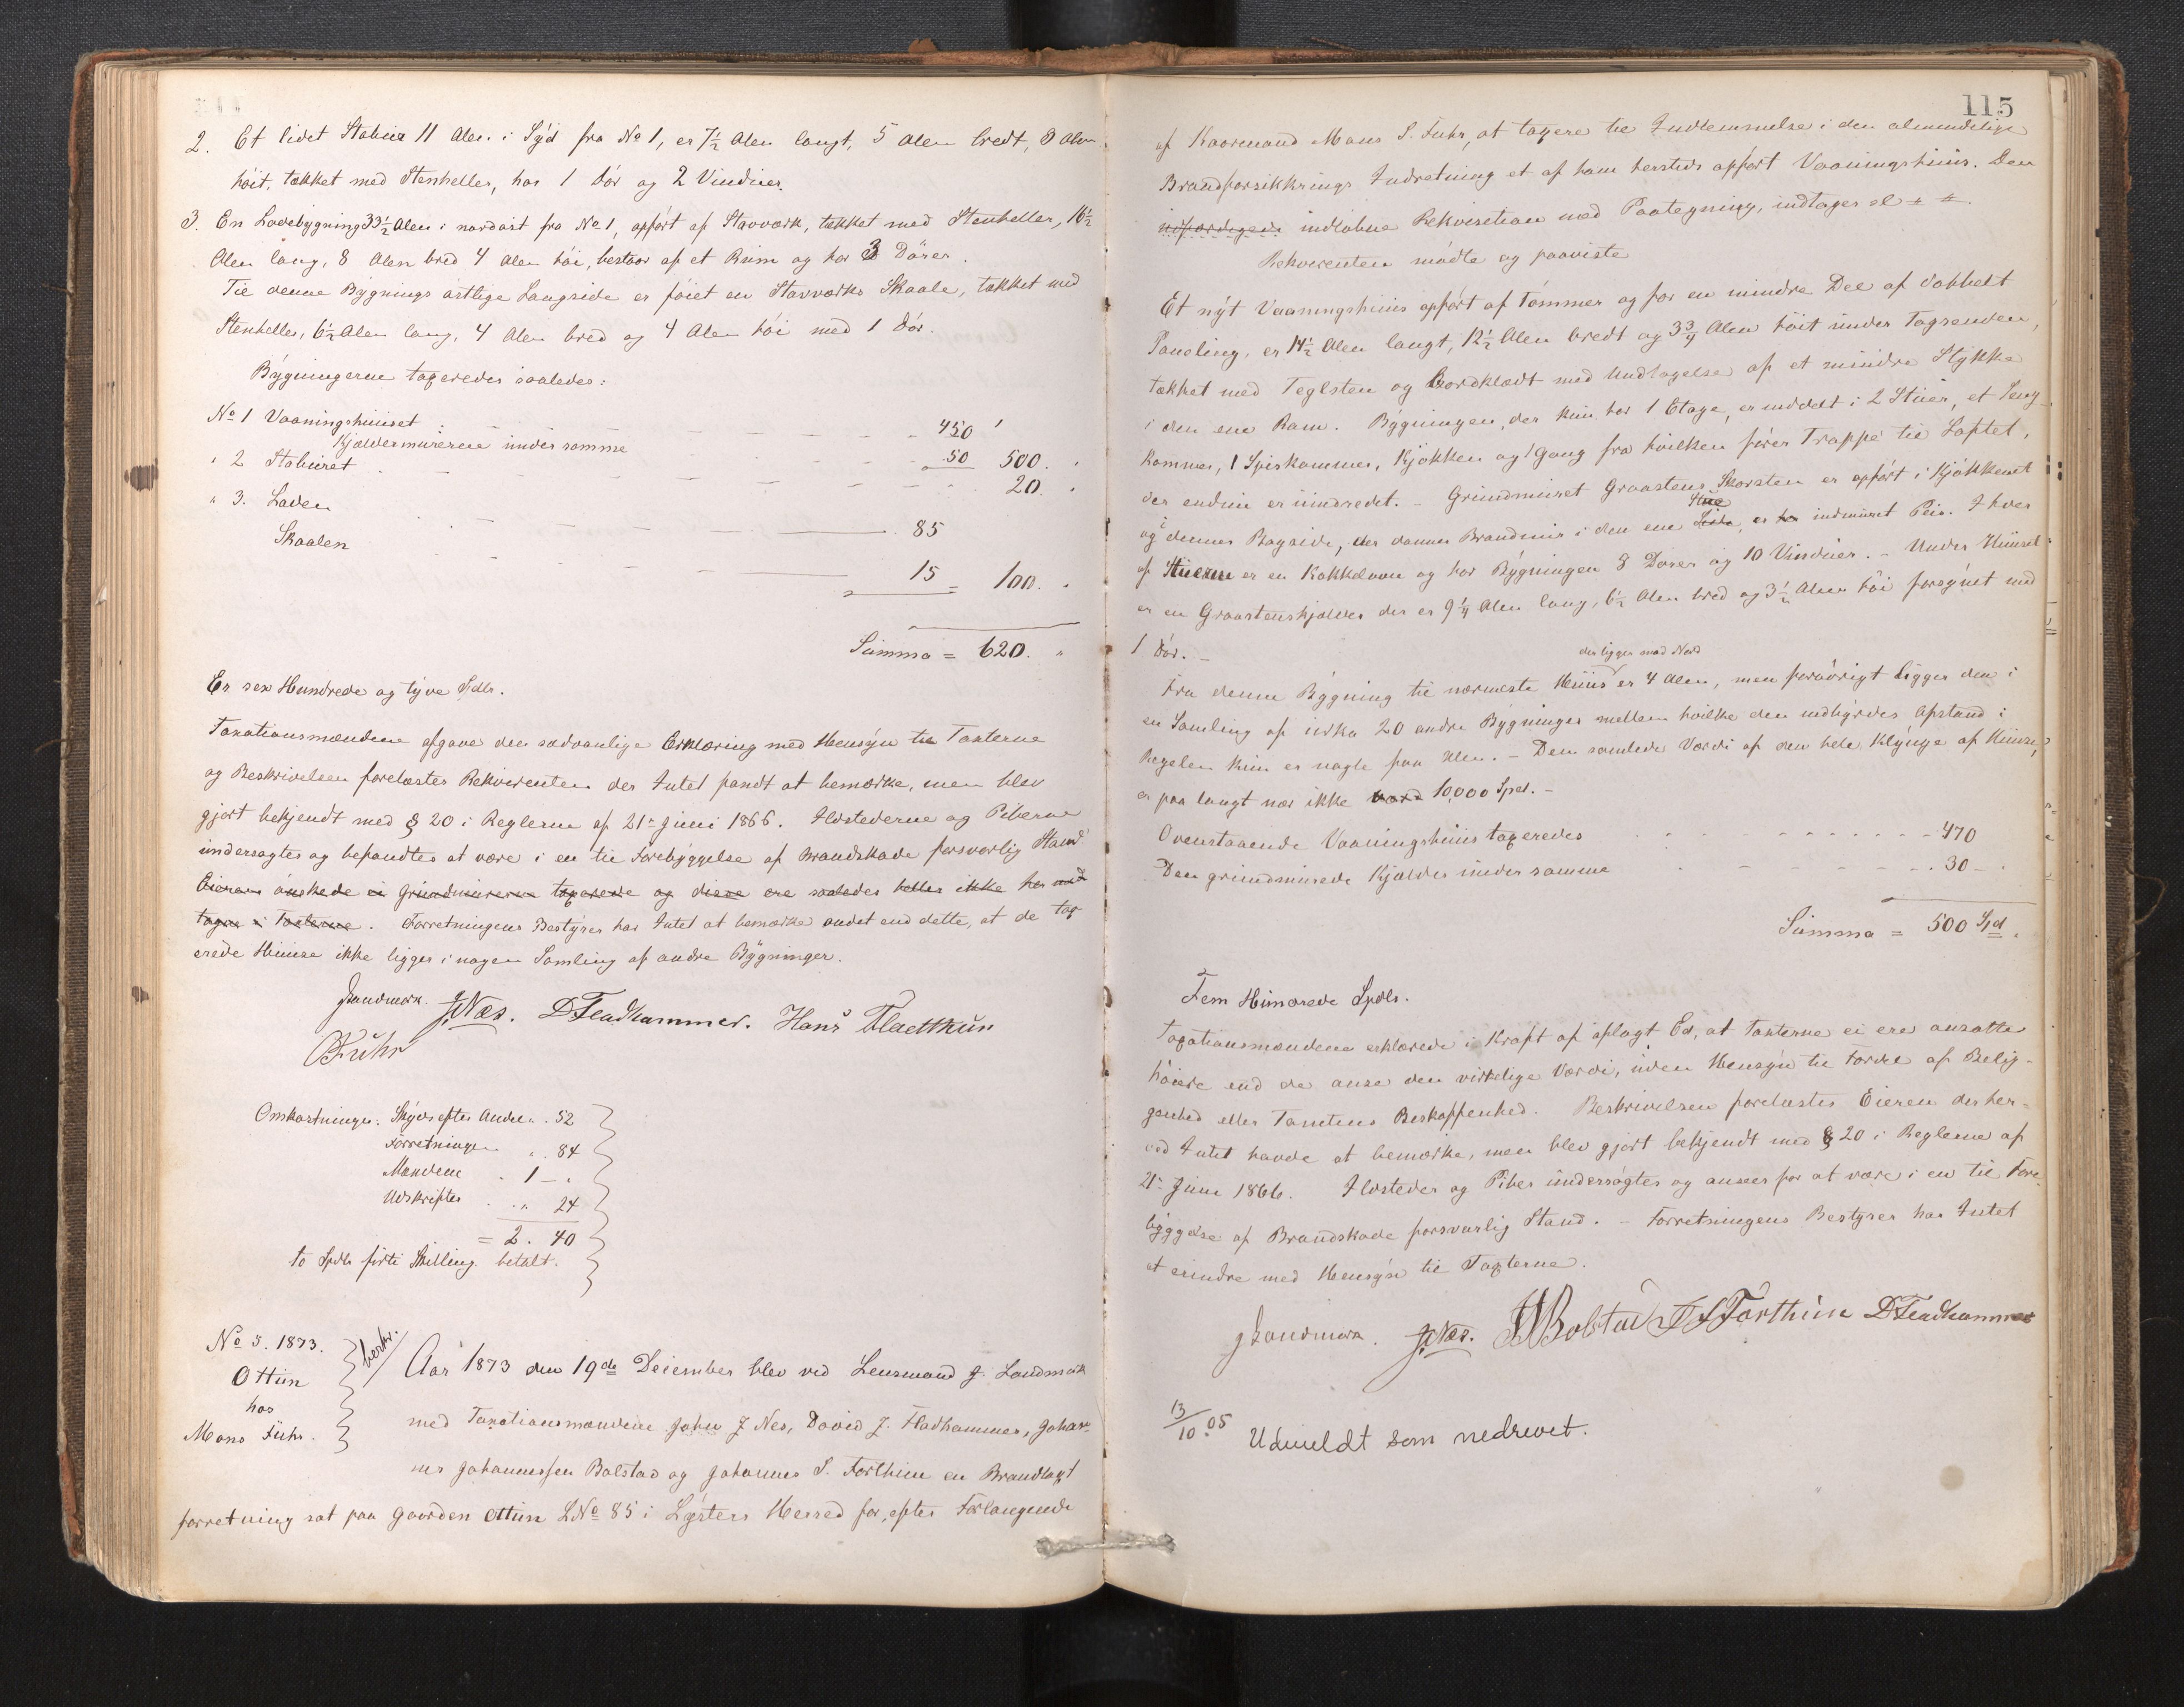 2. Et lidet Stabur 11 Alen i Syd fra No 1, er 7½ Alen langt, 5 Alen bredt, 3 Alen
höit, tækket med Stenheller, har 1 Dör og 2 Vinduer.
3. En Ladebygning 33½ Alen i nordöst fra No 1, opfört af Stavværk, tækket med Stenheller, 16½
Alen lang, 8 Alen bred 4 Alen höi, bestaar af et Rum og har 3 Dörer.
Til denne Bygnings östlige Langside er föiet en Stavværks Skaale, tækket med
Stenheller, 6½ Alen lang, 4 Alen bred og 4 Alen höi med 1 Dör.
Bygningerne taxeredes saaledes:
No 1 Vaaningshuuset 450
Kjældermurerne under samme 50 500.
" 2 Staburet 20.
" 3. Laden 85
Skaalen 15 = 100.
Summa = 620. "
Er sex Hundrede og tyve Spdlr.
Taxationsmændene afgave den sædvanlige Erklæring med Hensyn til Taxterne
og Beskrivelsen forelæstes Rekvirenten der Intet fandt at bemærke, men blev
gjort bekjendt med § 20 i Reglerne af 21de Juni 1866. Ildstederne og Piberne
undersøgtes og befandtes at være i en til Forebyggelse af Brandskade forsvarlig Stand.
Eieren önskede ei Grundmurerne taxerede og disse ere saaledes heller ikke her med
tagne i Taxterne. Forretningens Bestyrer har Intet at bemærke andet end dette, at de tax
erede Huuse ikke ligger i nogen Samling af andre Bygninger.
JLandmark. JJNæs. DFladhammer. Hans Flaetthun
OFuhr
Omkostninger. Skyds efter Anden. 52
Forretningen " 84
Mændene 1 – "
Udskrifter " 24
= 2. 40
to Spdlr firti Skilling betalt.
No 5. 1873.
Ottun
hos
Mons Fuhr.
beskr.
Aar 1873 den 19de December blev ved Lensmand J. Landmark
med Taxationsmændene John J Nes, David J. Fladhammer, Johan-
nes Johannessen Bolstad og Johannes S. Forthun en Brandtaxt
forretning sat paa Gaarden Ottun LNo 85 i Lysters Herred for, efter Forlangende
115
af Kaarmand Mons S. Fuhr, at taxere til Indlemmelse i den almindelige
Brandforsikkrings Indretning et af ham hersteds opfört Vaaningshuus. Den
indlöbne Rekvisition med Paategning, indtages sl # #.
Rekvirenten mödte og paaviste
Et nyt Vaaningshuus opfört af Tömmer og for en mindre Deel af dobbelt
Paneling, er 14½ Alen langt, 12½ Alen bredt og 3¾ Alen höit under Tagrenden,
tækket med Teglsten og Bordklædt med Undtagelse af et mindre Stykke
i den ene Ram. Bygningen, der kun har 1 Etage, er inddelt i 2 Stuer, et Seng-
kammer, 1 Spiskammer, Kjökken og 1 Gang fra hvilken förer Trappe til Loftet,
der endnu er uindredet. – Grundmuret Graastens Skorsten er opfört i Kjökkenet
og i dennes Bagside, der danner Brandmur i den ene Side Stue, er her indmuret Peis. I hver
af Stuerne er en Kakkelovn og har Bygningen 8 Dörer og 10 Vinduer. – Under Huuset
er en Graastenskjælder der er 9¼ Alen lang, 6½ Alen bred og 3½ Alen höi forsynet med
1 Dör. –
Fra denne Bygning til nærmeste Huus der ligger mod Nord er 4 Alen, men foröörigt ligger den i
en Samling af cirka 20 andre Bygninger mellem hvilke den indbyrdes Afstand i
Regelen kun er nogle faa Alen. – Den samlede Værdi af den hele Klynge af Huuse,
er paa langt nær ikke værd 10,000 Spd. –
Ovenstaaende Vaaningshuus taxeredes 470
Den grundmurede Kjælder under samme 30 –
Summa = 500 Spd.
Fem Hundrede Spdlr.
Taxationsmændene erklærede i Kraft af aflagt Ed, at Taxterne ei ere ansatte
höiere end de anse den virkelige Værdi, uden Hensyn til Fordel af Belig-
genhed eller Tomtens Beskaffenhed. Beskrivelsen forelæstes Eieren der her-
ved Intet havde at bemærke, men blev gjort bekjendt med § 20 i Reglerne af
21de Juni 1866. Ildsteder og Piber undersögtes og ansees for at være i en til Fore-
byggelse af Brandskade forsvarlig Stand. – Forretningens Bestyrer har Intet
at erindre med Hensyn til Taxterne.
JLandmark. JJNæs. JJBolstad JSForthun DFladhammer
13/10 05 Udmeldt som nedrevet.